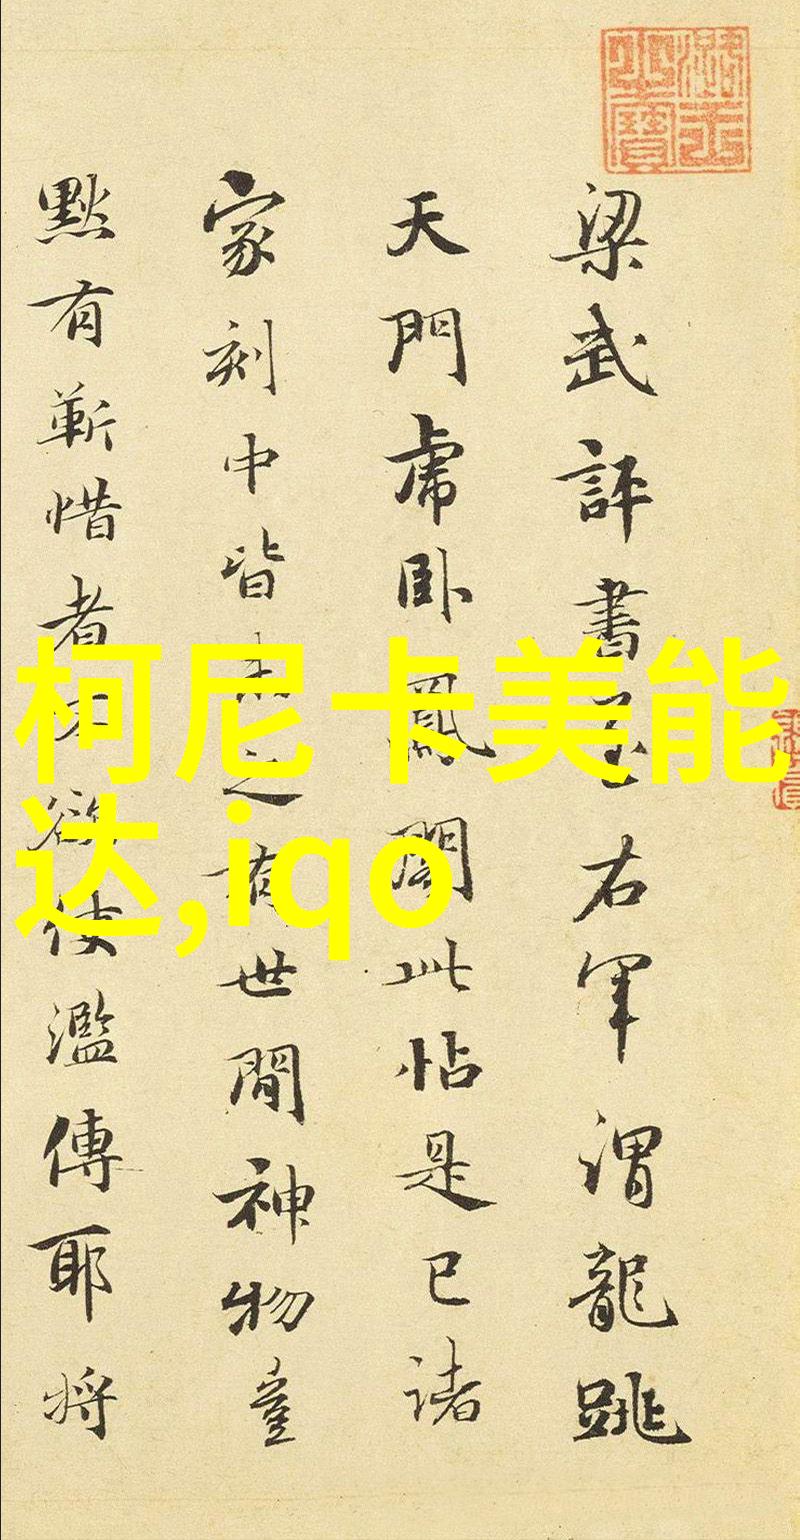 梁武評書至右軍謂龍跳
天門虎卧鳳閣此帖是已諸
家刻中皆未之有世間神物豈
默有靳惜者不欲使濫傳耶將
柯尼卡美能
达,iqo